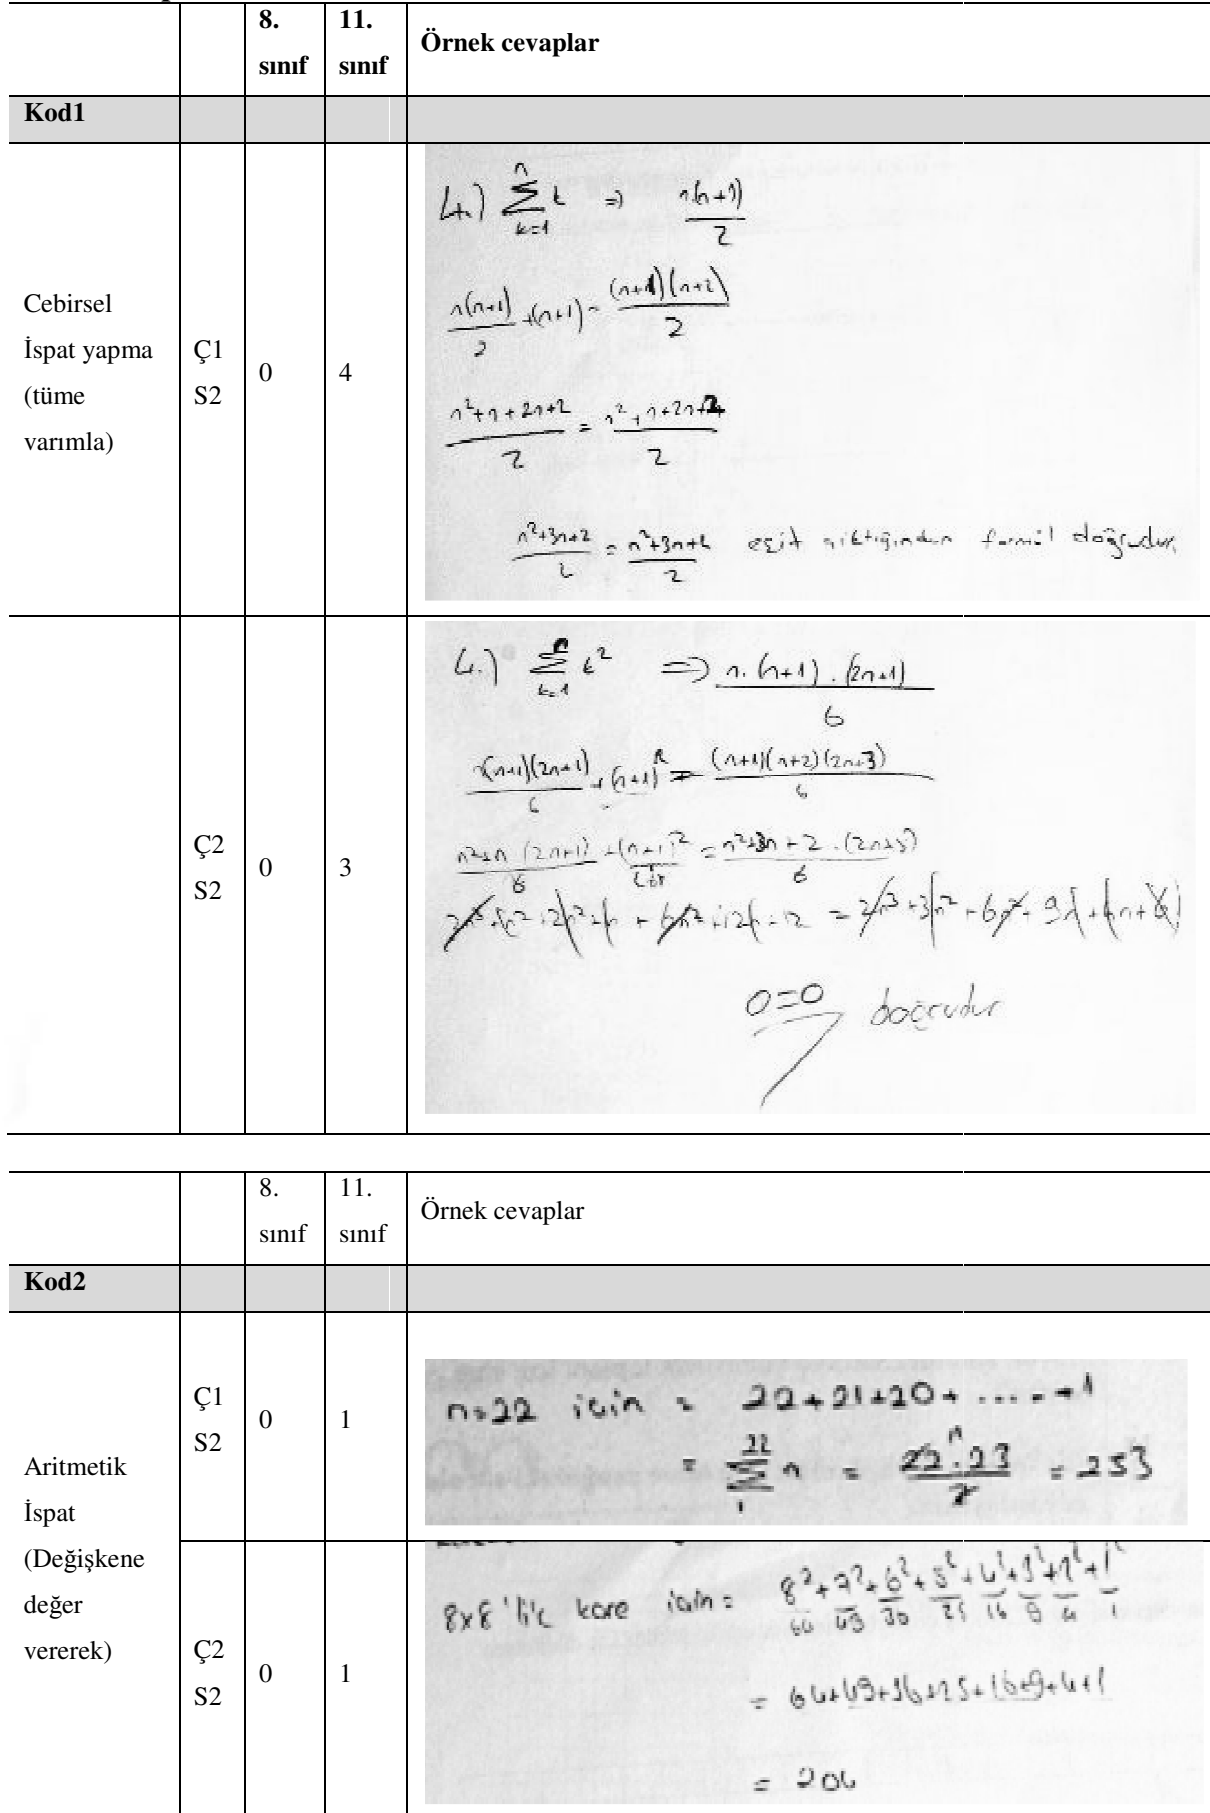 8. sınıf 11. sınıf Örnek cevaplar
Kod1
Cebirsel İspat yapma (tüme varımla) Ç1 S2 0 4
4.) ∑_{k=1}^{n} k => n(n+1)/2
n(n+1)/2 + (n+1) = (n+1)(n+2)/2
(n²+n+2n+2)/2 = (n²+n+2n+2)/2
(n²+3n+2)/2 = (n²+3n+2)/2 eşit çıktığından formül doğrudur.
Ç2 S2 0 3
4.) ∑_{k=1}^{n} k² => n.(n+1).(2n+1)/6
n(n+1)(2n+1)/6 + (n+1)² = (n+1)(n+2)(2n+3)/6
0=0 doğrudur
8. sınıf 11. sınıf Örnek cevaplar
Kod2
Aritmetik İspat (Değişkene değer vererek) Ç1 S2 0 1
n=22 için = 22+21+20+.....+1
= ∑_{1}^{22} n = 22.23/2 = 253
Ç2 S2 0 1
8x8'lik kare için = 8²+7²+6²+5²+4²+3²+2²+1²
64 49 36 25 16 9 4 1
= 64+49+36+25+16+9+4+1
= 204